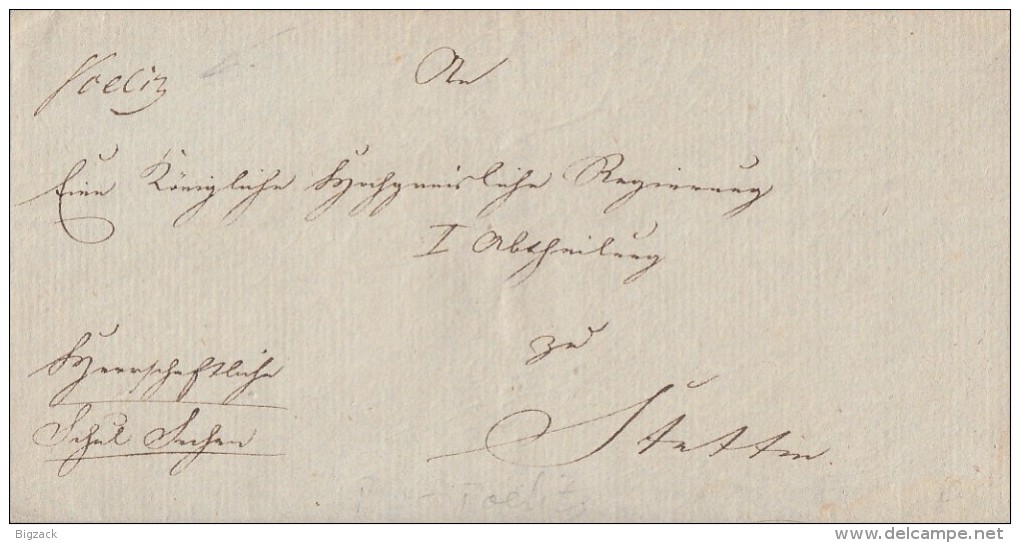 Poelitz
An
Eine Königliche Hochpreisliche Regierung
I Abtheilung
zu
Herrschaftliche
Schul Sachen
Stettin.
Poelitz
Bigzack
delcampe.net